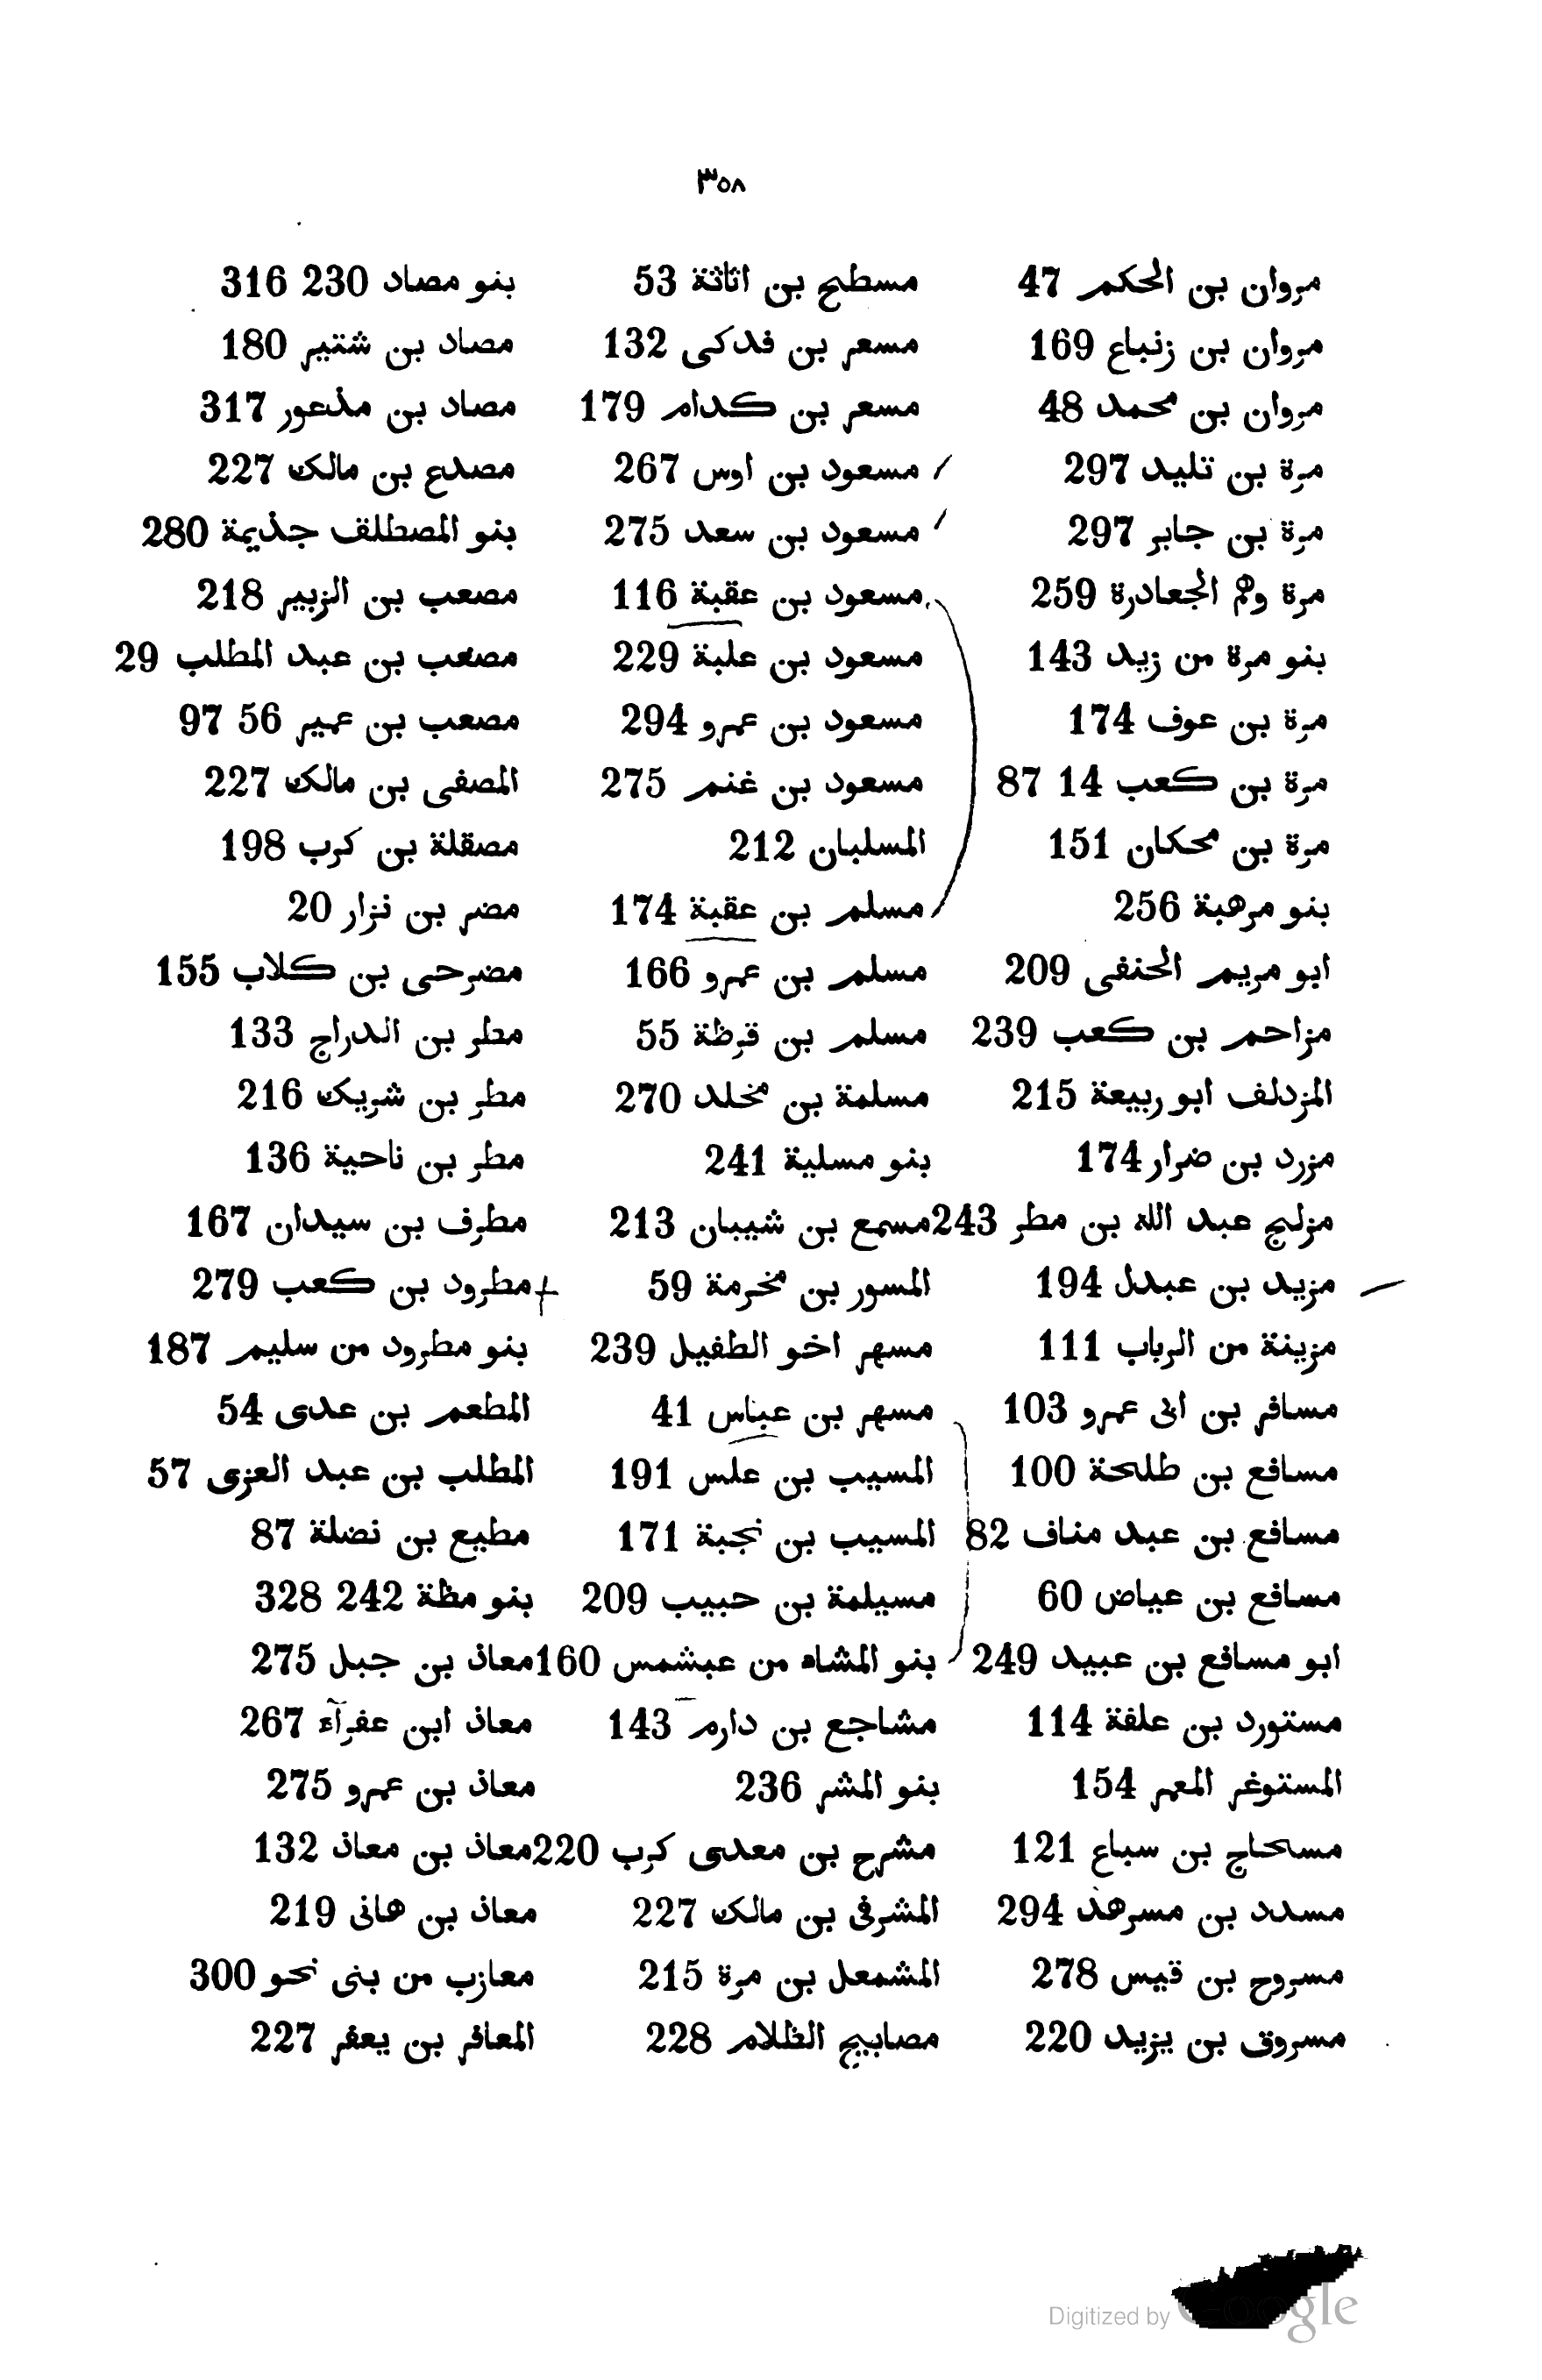 ٣٥٨
مروان بن الحكم 47
مروان بن زنباع 169
مروان بن محمد 48
مرة بن تليد 297
مرة بن جابر 297
مرة وهم الجعادرة 259
بنو مرة من زيد 143
مرة بن عوف 174
مرة بن كعب 14 87
مرة بن محكان 151
بنو مرهبة 256
ابو مريم الحنفى 209
مزاحم بن كعب 239
المزدلف ابو ربيعة 215
مزرد بن ضرار 174
مزلج عبد الله بن مطر 243
مزيد بن عبدل 194
مزينة من الرباب 111
مسافر بن ابى عمرو 103
مسافع بن طلحة 100
مسافع بن عبد مناف 82
مسافع بن عياض 60
ابو مسافع بن عبيد 249
مستورد بن علفة 114
المستوغر المعمر 154
مساحاج بن سباع 121
مسدد بن مسرهذ 294
مسروح بن قيس 278
مسروق بن يزيد 220
مسطح بن اثاثة 53
مسعر بن فدكى 132
مسعر بن كدام 179
مسعود بن اوس 267
مسعود بن سعد 275
مسعود بن عقبة 116
مسعود بن علبة 229
مسعود بن عمرو 294
مسعود بن غنم 275
المسلبان 212
مسلم بن عقبة 174
مسلم بن عمرو 166
مسلم بن قرظة 55
مسلمة بن مخلد 270
بنو مسلية 241
مسمع بن شيبان 213
المسور بن مخرمة 59
مسهر اخو الطفيل 239
مسهر بن عباس 41
المسيب بن علس 191
المسيب بن نجبة 171
مسيلمة بن حبيب 209
بنو المشاه من عبشمس 160
مشاجع بن دارم 143
بنو المشر 236
مشرح بن معدى كرب 220
المشرفى بن مالك 227
المشمعل بن مرة 215
مصابيح الظلام 228
بنو مصاد 230 316
مصاد بن شتير 180
مصاد بن مذعور 317
مصدع بن مالك 227
بنو المصطلق جذيمة 280
مصعب بن الزبير 218
مصعب بن عبد المطلب 29
مصعب بن عمير 56 97
المصفى بن مالك 227
مصقلة بن كرب 198
مضر بن نزار 20
مضرحى بن كلاب 155
مطر بن الدراج 133
مطر بن شريك 216
مطر بن ناحية 136
مطرف بن سيدان 167
مطرود بن كعب 279
بنو مطرود من سليم 187
المطعم بن عدى 54
المطلب بن عبد العزى 57
مطيع بن نضلة 87
بنو مظة 242 328
معاذ بن جبل 275
معاذ ابن عفرآء 267
معاذ بن عمرو 275
معاذ بن معاذ 132
معاذ بن هانى 219
معازب من بنى نحو 300
المعافر بن يعفر 227
Digitized by Google